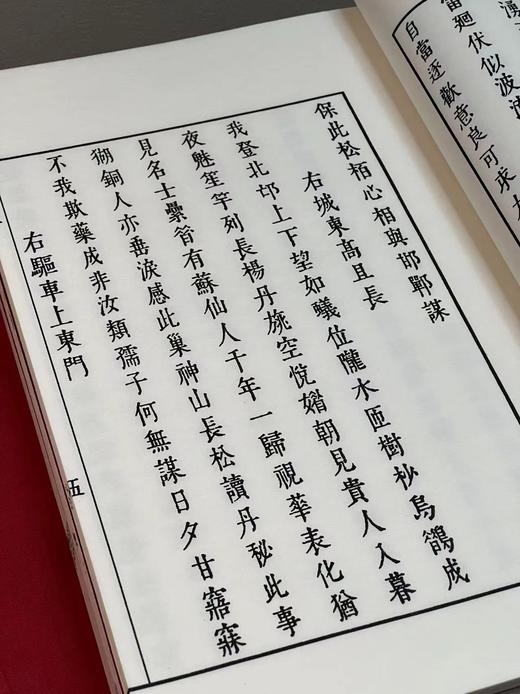 當廻伏似波
自當逐歡意良可求
保此松栢心相與邯鄲謀
右城東髙且長
我登北邙上下望如蟻位隴水匝樹杪烏成
夜魅笙竽列長楊丹旐空悅朝見貴人入暮
見名士纍有蘇仙人千年一歸視華表化猶
銅人亦垂淚感此巢神山長松讀丹秘此事
不我欺藥成非汝類孺子何無謀日夕甘寤寐
右驅車上東門
五